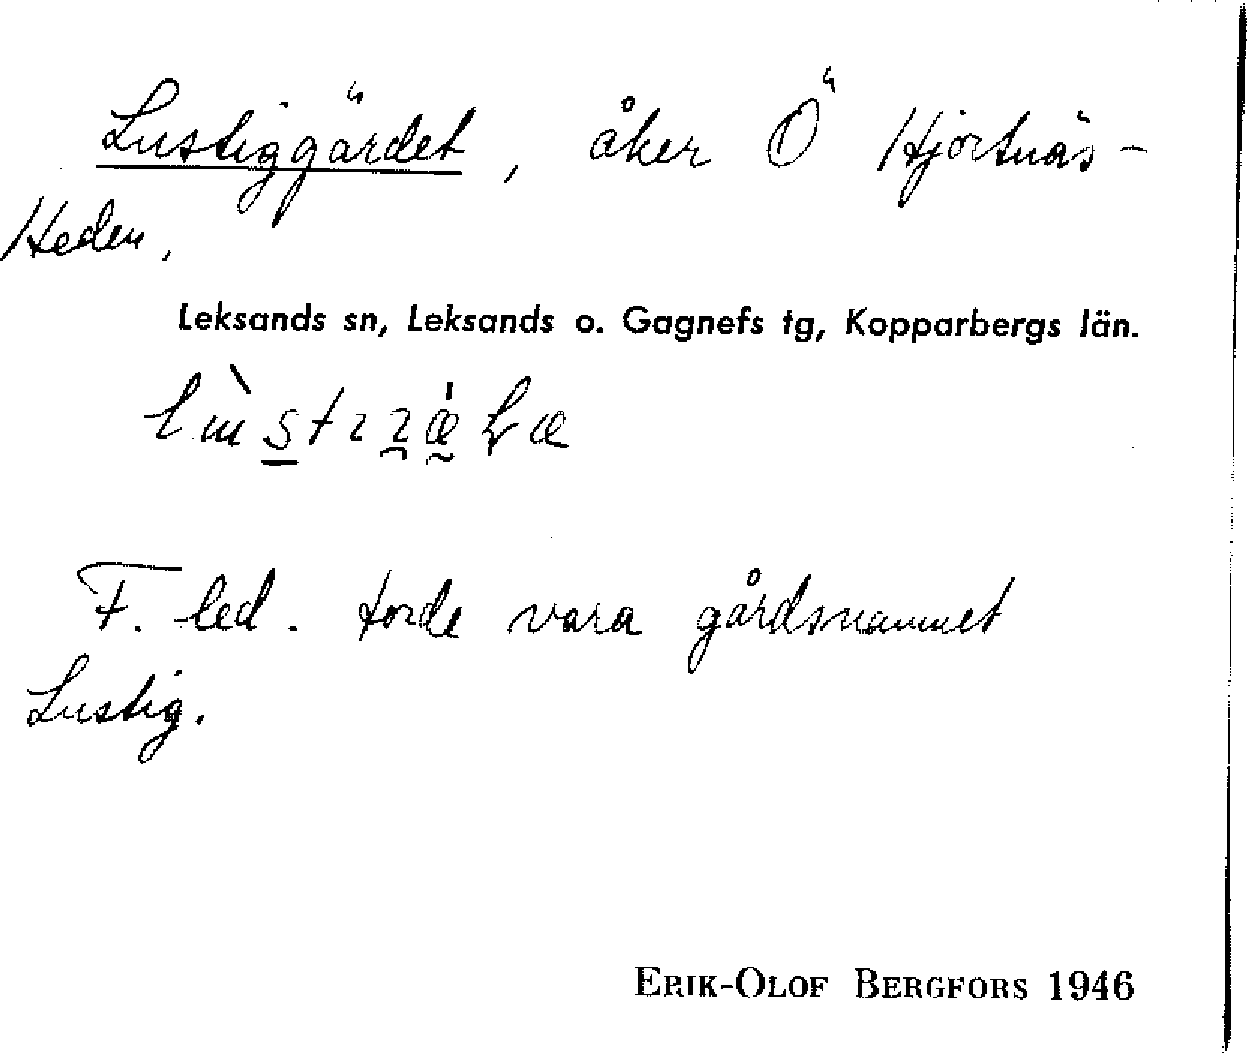 Lustiggärdet, åker Ö Hjortnäs-
Heden,
Leksands sn, Leksands o. Gagnefs tg, Kopparbergs län.
F. led. torde vara gårdsnamnet
Lustig.
ERIK-OLOF BERGFORS 1946